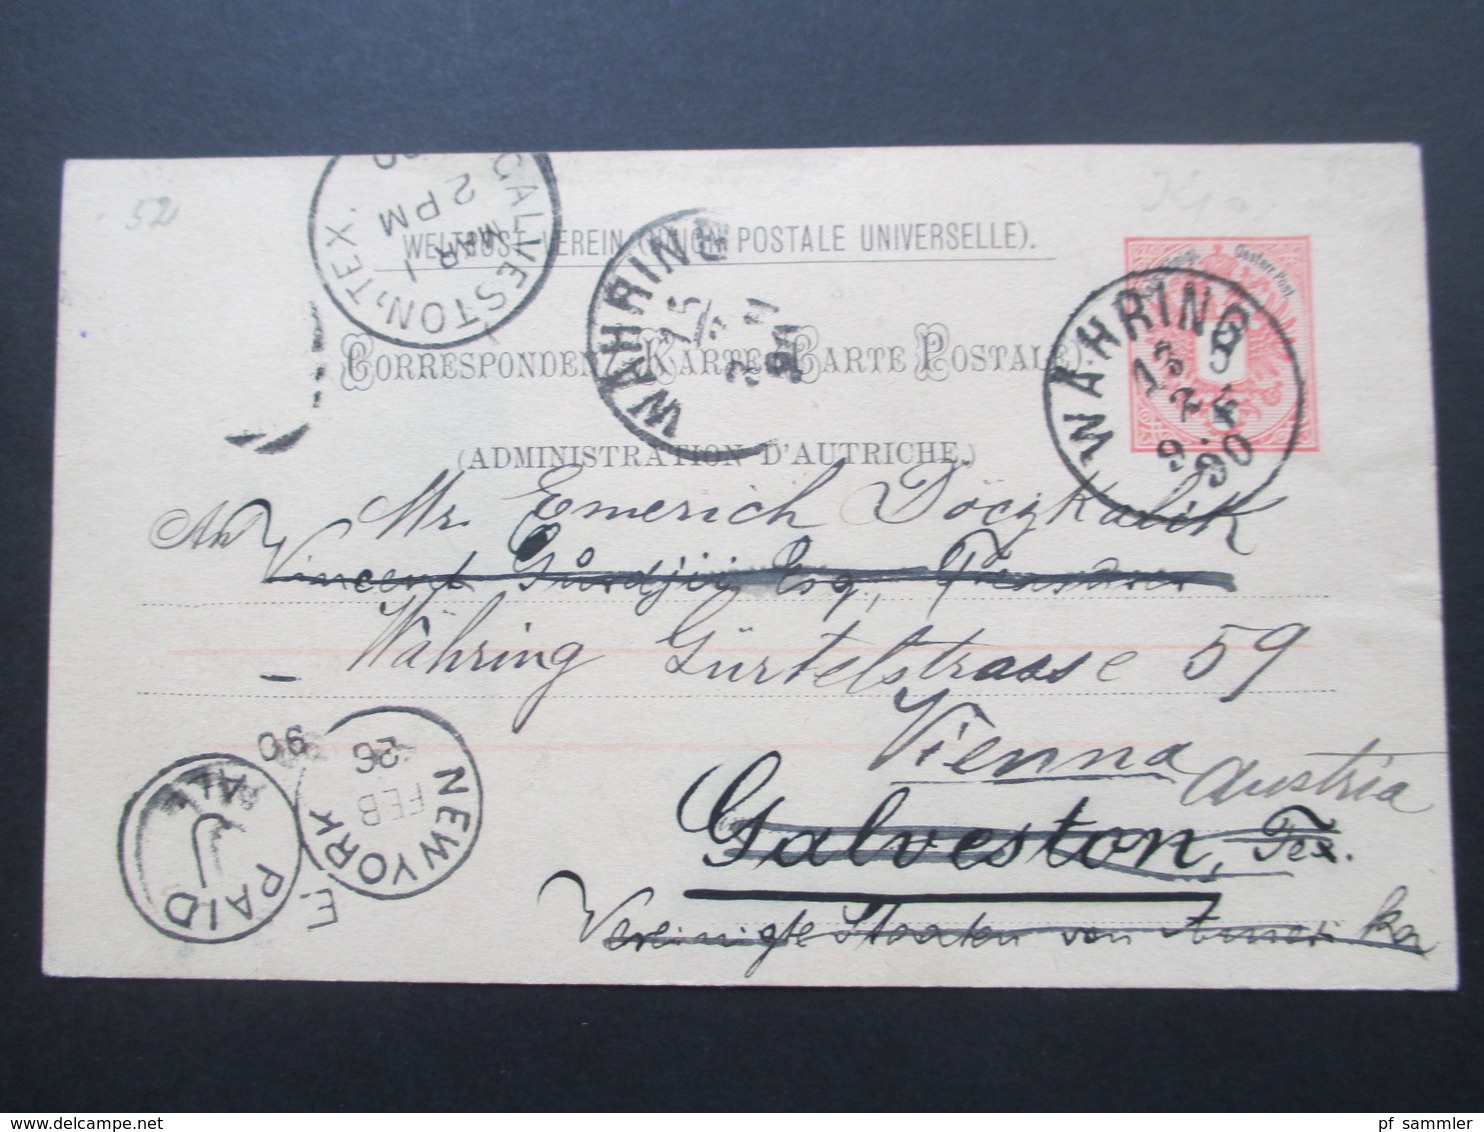 52
GALVESTON, TEX.
MAR
1
2 PM
WELTPOST-VEREIN (UNION POSTALE UNIVERSELLE).
WÄHRING
15
WÄHRING
13
2
9.
90
Oesterr. Post.
CORRESPONDENZ-KARTE CARTE POSTALE
(ADMINISTRATION D'AUTRICHE.)
An
Mr. Emerich Döczkalik
Vincent Esq, Treasurer
Währing Gürtelstrasse 59
Vienna
Austria
Galveston, Tex.
Vereinigte Staaten von Amerika
NEW YORK
FEB
26
90
PAID
ALL
pf_sammler